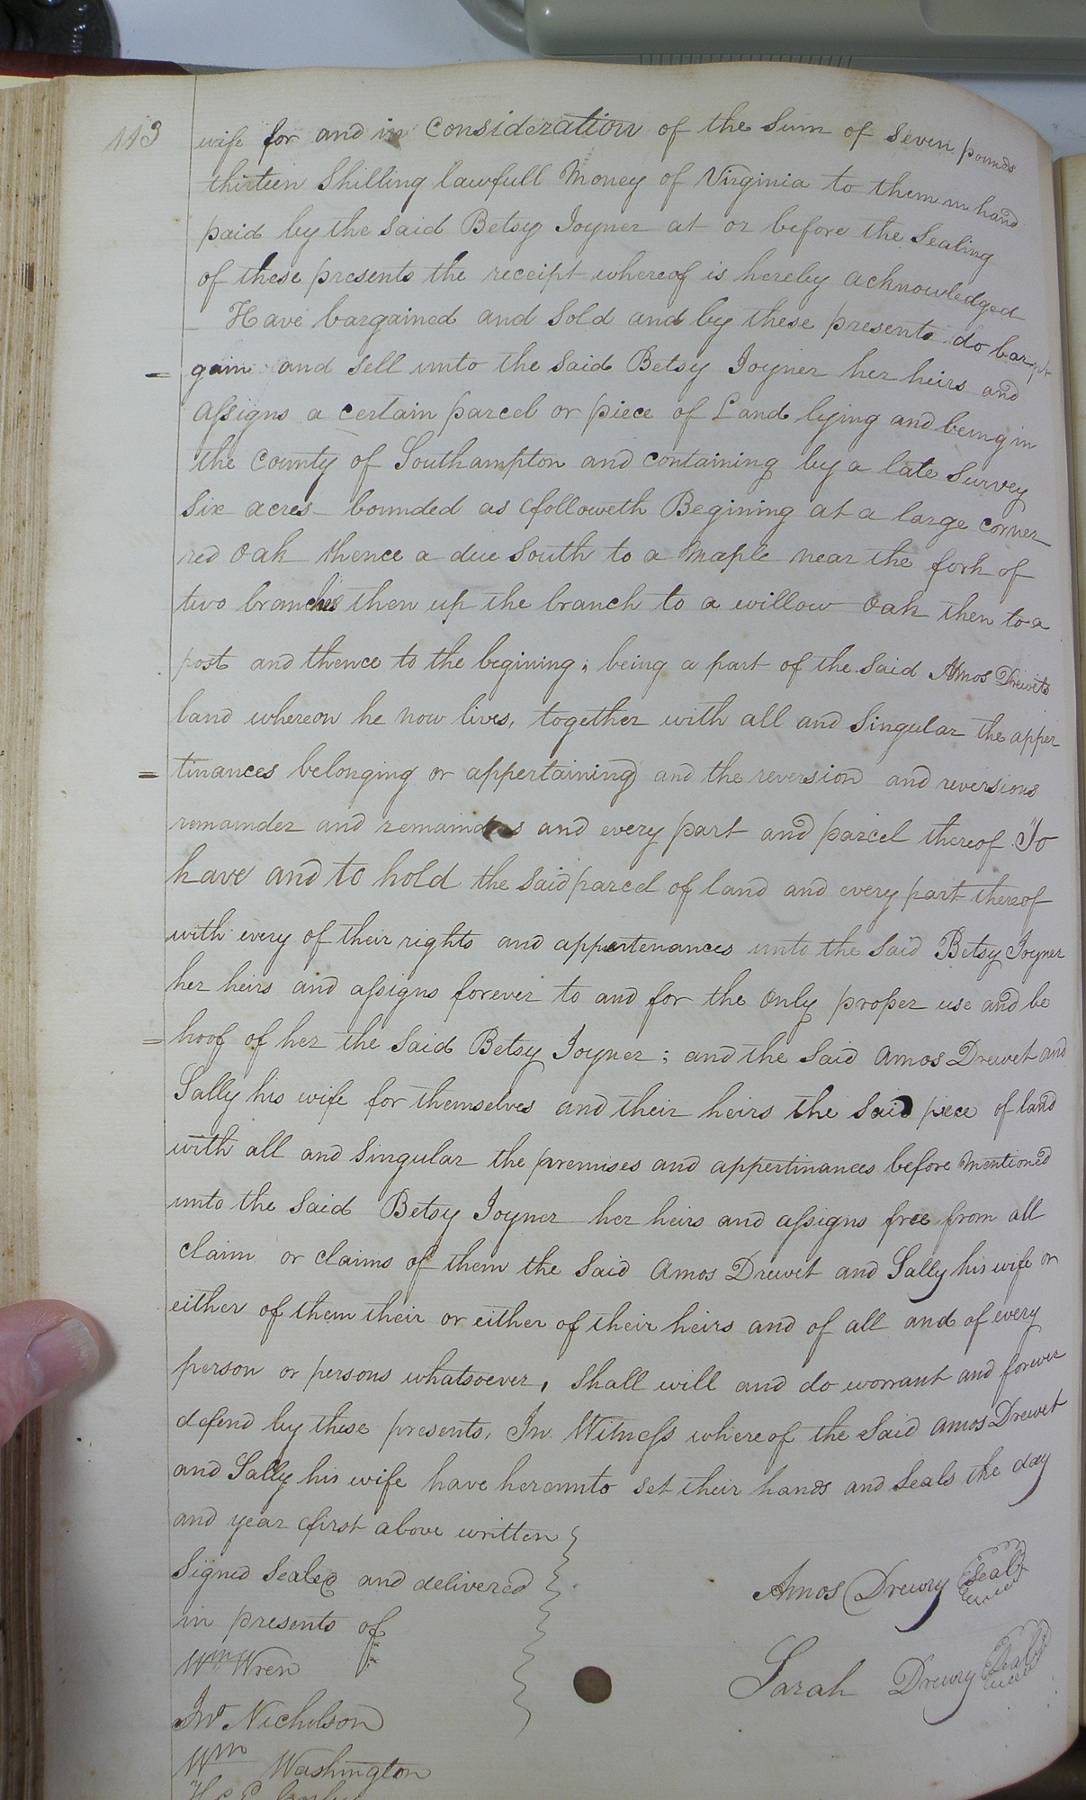 113
wife for and in consideration of the Sum of Seven pounds
thirteen Shilling lawfull Money of Virginia to them in hand
paid by the said Betsy Joyner at or before the Sealing
of these presents the receipt whereof is hereby acknowledged
Have bargained and Sold and by these presents do bar
= gain and sell unto the said Betsy Joyner her heirs and
assigns a certain parcel or piece of Land lying and being in
the County of Southampton and containing by a late Survey
Six acres bounded as followeth Begining at a large corner
red Oak thence a due South to a Maple near the fork of
two branches then up the branch to a willow Oak then to a
post and thence to the begining; being a part of the Said Amos Drewets
land whereon he now lives, together with all and Singular the apper
= tinances belonging or appertaining and the reversion and reversions
remainder and remainders and every part and parcel thereof. To
have and to hold the said parcel of land and every part thereof
with every of their rights and appertenances unto the Said Betsy Joyner
her heirs and assigns forever to and for the Only proper use and be
= hoof of her the Said Betsy Joyner; and the Said Amos Drewet and
Sally his wife for themselves and their heirs the Said piece of land
with all and Singular the premises and appertinances before Mentioned
unto the Said Betsy Joyner her heirs and assigns free from all
claim or claims of them the Said Amos Drewet and Sally his wife or
either of them their or either of their heirs and of all and of every
person or persons whatsoever, Shall will and do worrant and forever
defend by these presents, In Witness whereof the Said Amos Drewet
and Sally his wife have hereunto set their hands and Seals the day
and year first above written
Signed Sealed and delivered
in presents of
Amos Drewry Seal
Wm Wren
Sarah Drewry Seal
Jno Nicholson
Wm Washington